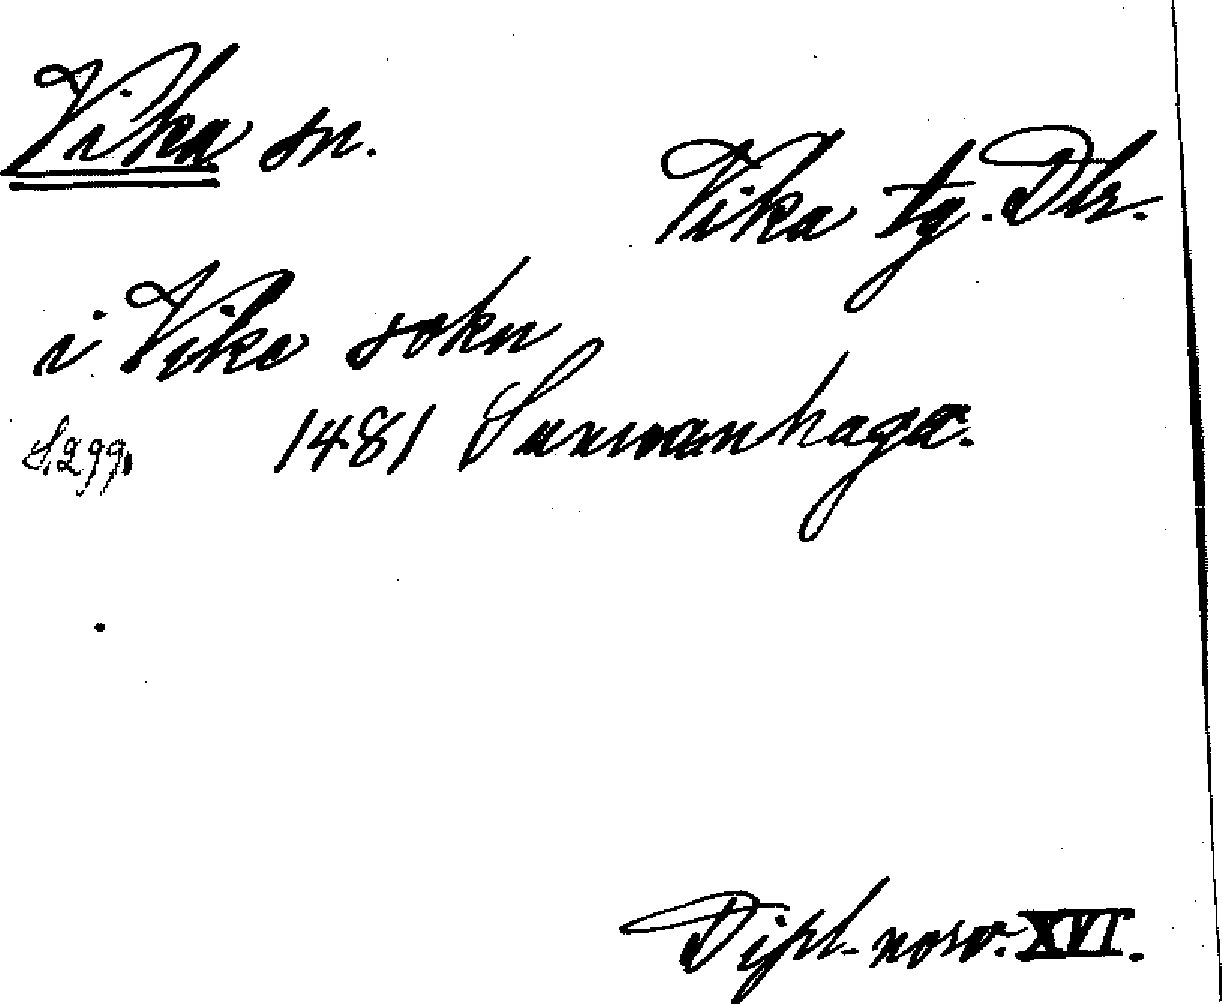 Vika sn.
Vika tg. Dlr.
i Vika sokn
S. 299. 1481 Sunnanhaga.
Dipl. norv. XVI.